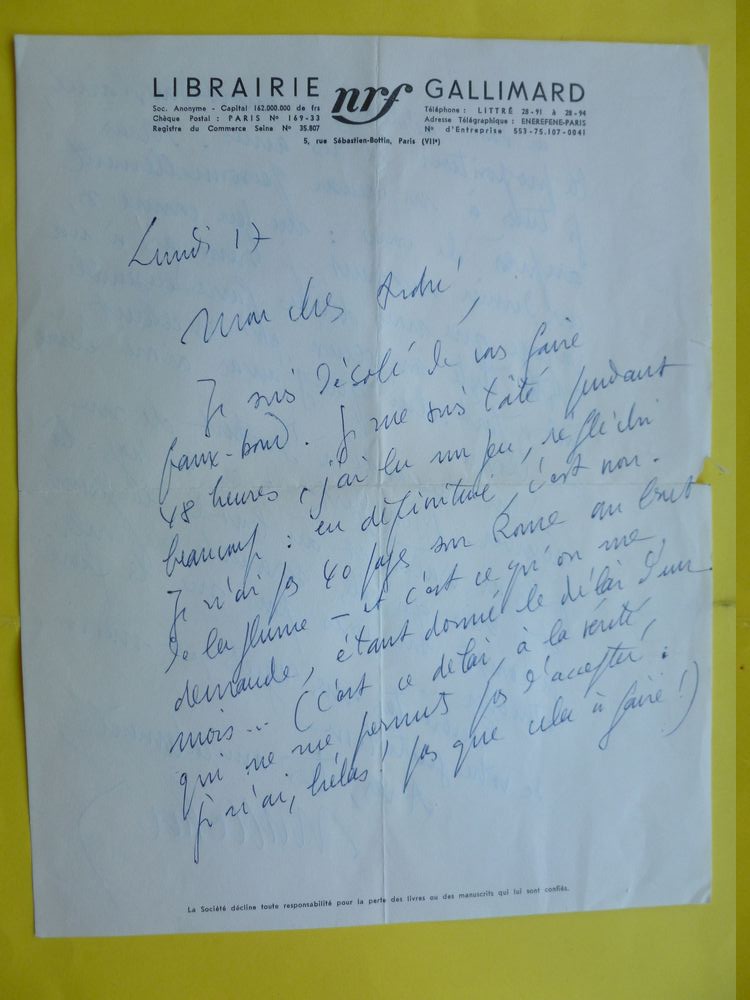 LIBRAIRIE nrf GALLIMARD
Soc. Anonyme - Capital 162.000.000 de frs
Chèque Postal : PARIS Nº 169-33
Registre du Commerce Seine Nº 35.807
Téléphone : LITTRÉ 28-91 à 28-94
Adresse Télégraphique : ENEREFENE-PARIS
Nº d'Entreprise 553-75.107-0041
5, rue Sébastien-Bottin, Paris (VIIᵉ)
Lundi 17
Mon cher André,
Je suis désolé de vous faire
faux-bond. Je me suis tâté pendant
48 heures, j'ai lu un peu, réfléchi
beaucoup : en définitive, c'est non.
Je n'ai pas 40 pages sur Rome au bout
de la plume — et c'est ce qu'on me
demande, étant donné le délai d'un
mois... (C'est ce délai, à la vérité,
qui ne me permet pas d'accepter.
Je n'ai, hélas ! pas que cela à faire !)
La Société décline toute responsabilité pour la perte des livres ou des manuscrits qui lui sont confiés.